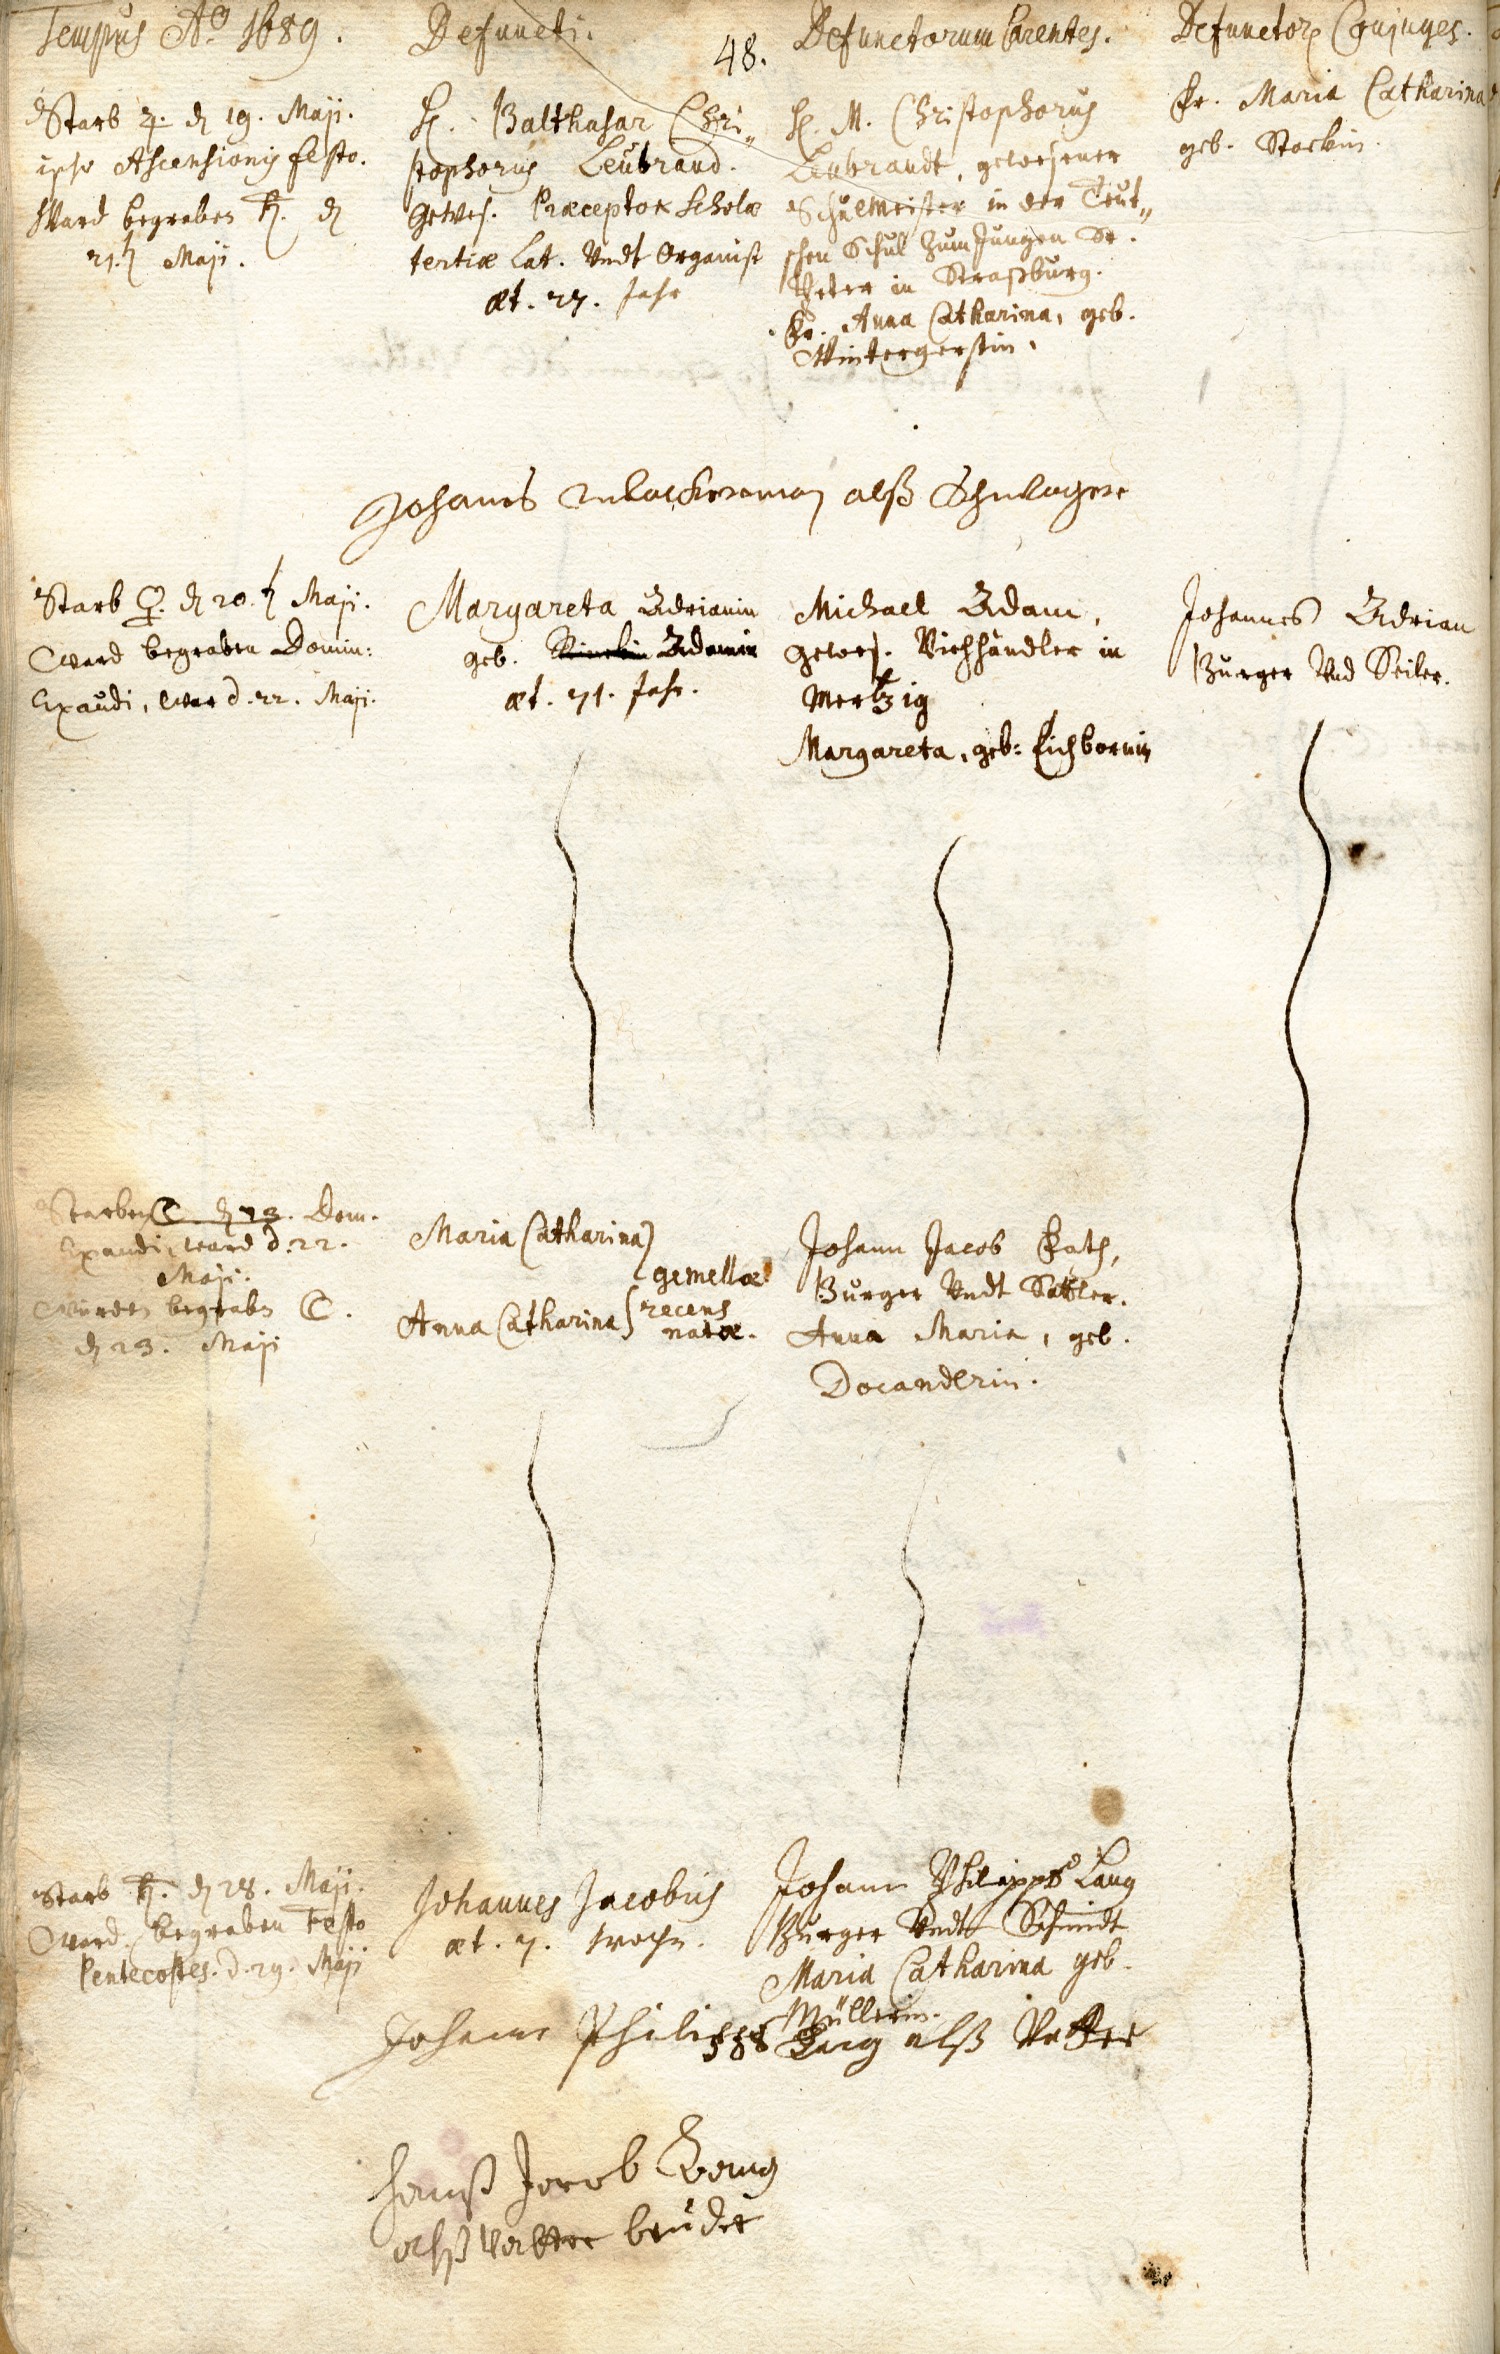 Tempus Aº 1689.
Defuncti.
48.
Defunctorum Parentes.
Defunctor. Conjuges.
Starb ♃. d 19. Maji.
ipso Ascensionis festo.
Ward begraben ♄. d
21. Maji.
H. Balthasar Chri„
stophorus Leübrand.
Gewes. Præceptor Scholæ
tertiæ Lat. Vndt Organist
æt. 27. Jahr
H. M. Christophorus
Leübrandt, gewesener
Schulmeister in der Teut„
schen Schul zum Jungen St.
Peter in Straßburg.
Fr. Anna Catharina, geb.
Wintergerstin.
Fr. Maria Catharina
geb. Stoekin.
Johanes alß Schwager
Starb ♀. d 20. Maji.
Ward begraben Domin:
Exaudi, war d. 22. Maji.
Margareta Adrianin
geb. Adamin
æt. 71. Jahr.
Michael Adam,
gewes. Viehhändler in
Mertzig
Margareta, geb: Eichbornin
Johannes Adrian
Burger Vnd Seiler.
Starben Dom.
Exaudi, ward d. 22.
Maji.
Wurden begraben ☾.
d 23. Maji
Maria Catharina
gemellæ
Anna Catharina recens
natæ.
Johann Jacob Kath,
Burger Vndt Sattler.
Anna Maria, geb.
Docanderin.
Starb ♄. d 28. Maji.
Ward begraben Festo
Pentecostes. d. 29. Maji
Johannes Jacobus
æt. 7. woch.
Johann Philipps Lang
Burger Vndt Schmidt
Maria Catharina geb.
Müllerin.
Johann Philipps Lang alß Vatter
Hanß Jacob Lang
alß Vatter bruder